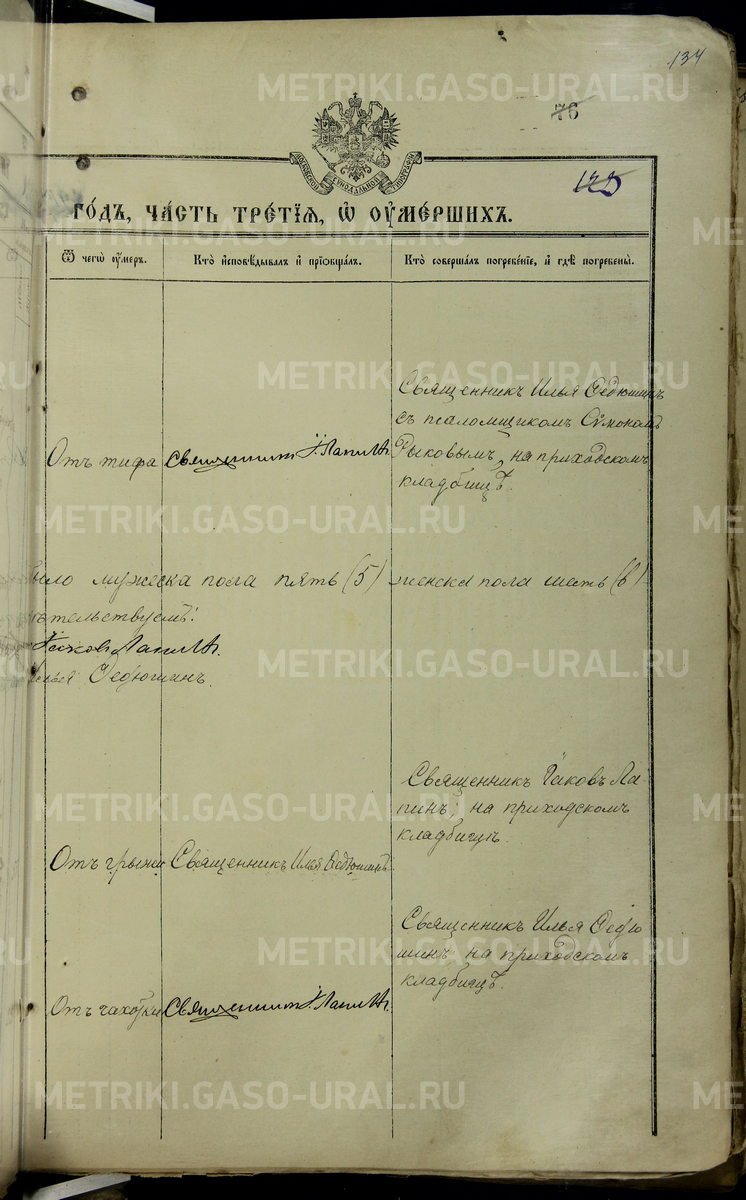 134
76
125
МОСКОВСКОЙ СѴНОДАЛЬНОЙ ТИПОГРАФІИ
ГО́ДЪ, ЧА́СТЬ ТРЕ́ТІѦ, Ѽ ОУ҆МЕ́РШИХЪ.
Ѿ чегѡ̀ оу҆́мер.
Кто̀ и҆сповѣ́дывалъ и҆ прїѡбща́лъ.
Кто̀ соверша́лъ погребе́нїе, и҆ гдѣ̀ погребены̀.
Отъ тифа
Священникъ І. Лапинъ.
Священникъ Илья Ѳедюшинъ
съ псаломщикомъ Сѵмономъ
Рыковымъ, на приходскомъ
кладбищѣ.
было мужеска пола пять (5) женска пола шесть (6)
тельствуемъ:
Іаковъ Лапинъ.
Илья Ѳедюшинъ.
Отъ грыжи
Священникъ Илья Ѳедюшинъ
Священникъ Іаковъ Ла-
пинъ, на приходскомъ
кладбищѣ.
Отъ чахотки
Священникъ І. Лапинъ.
Священникъ Илья Ѳедю
шинъ, на приходскомъ
кладбищѣ.
METRIKI.GASO-URAL.RU